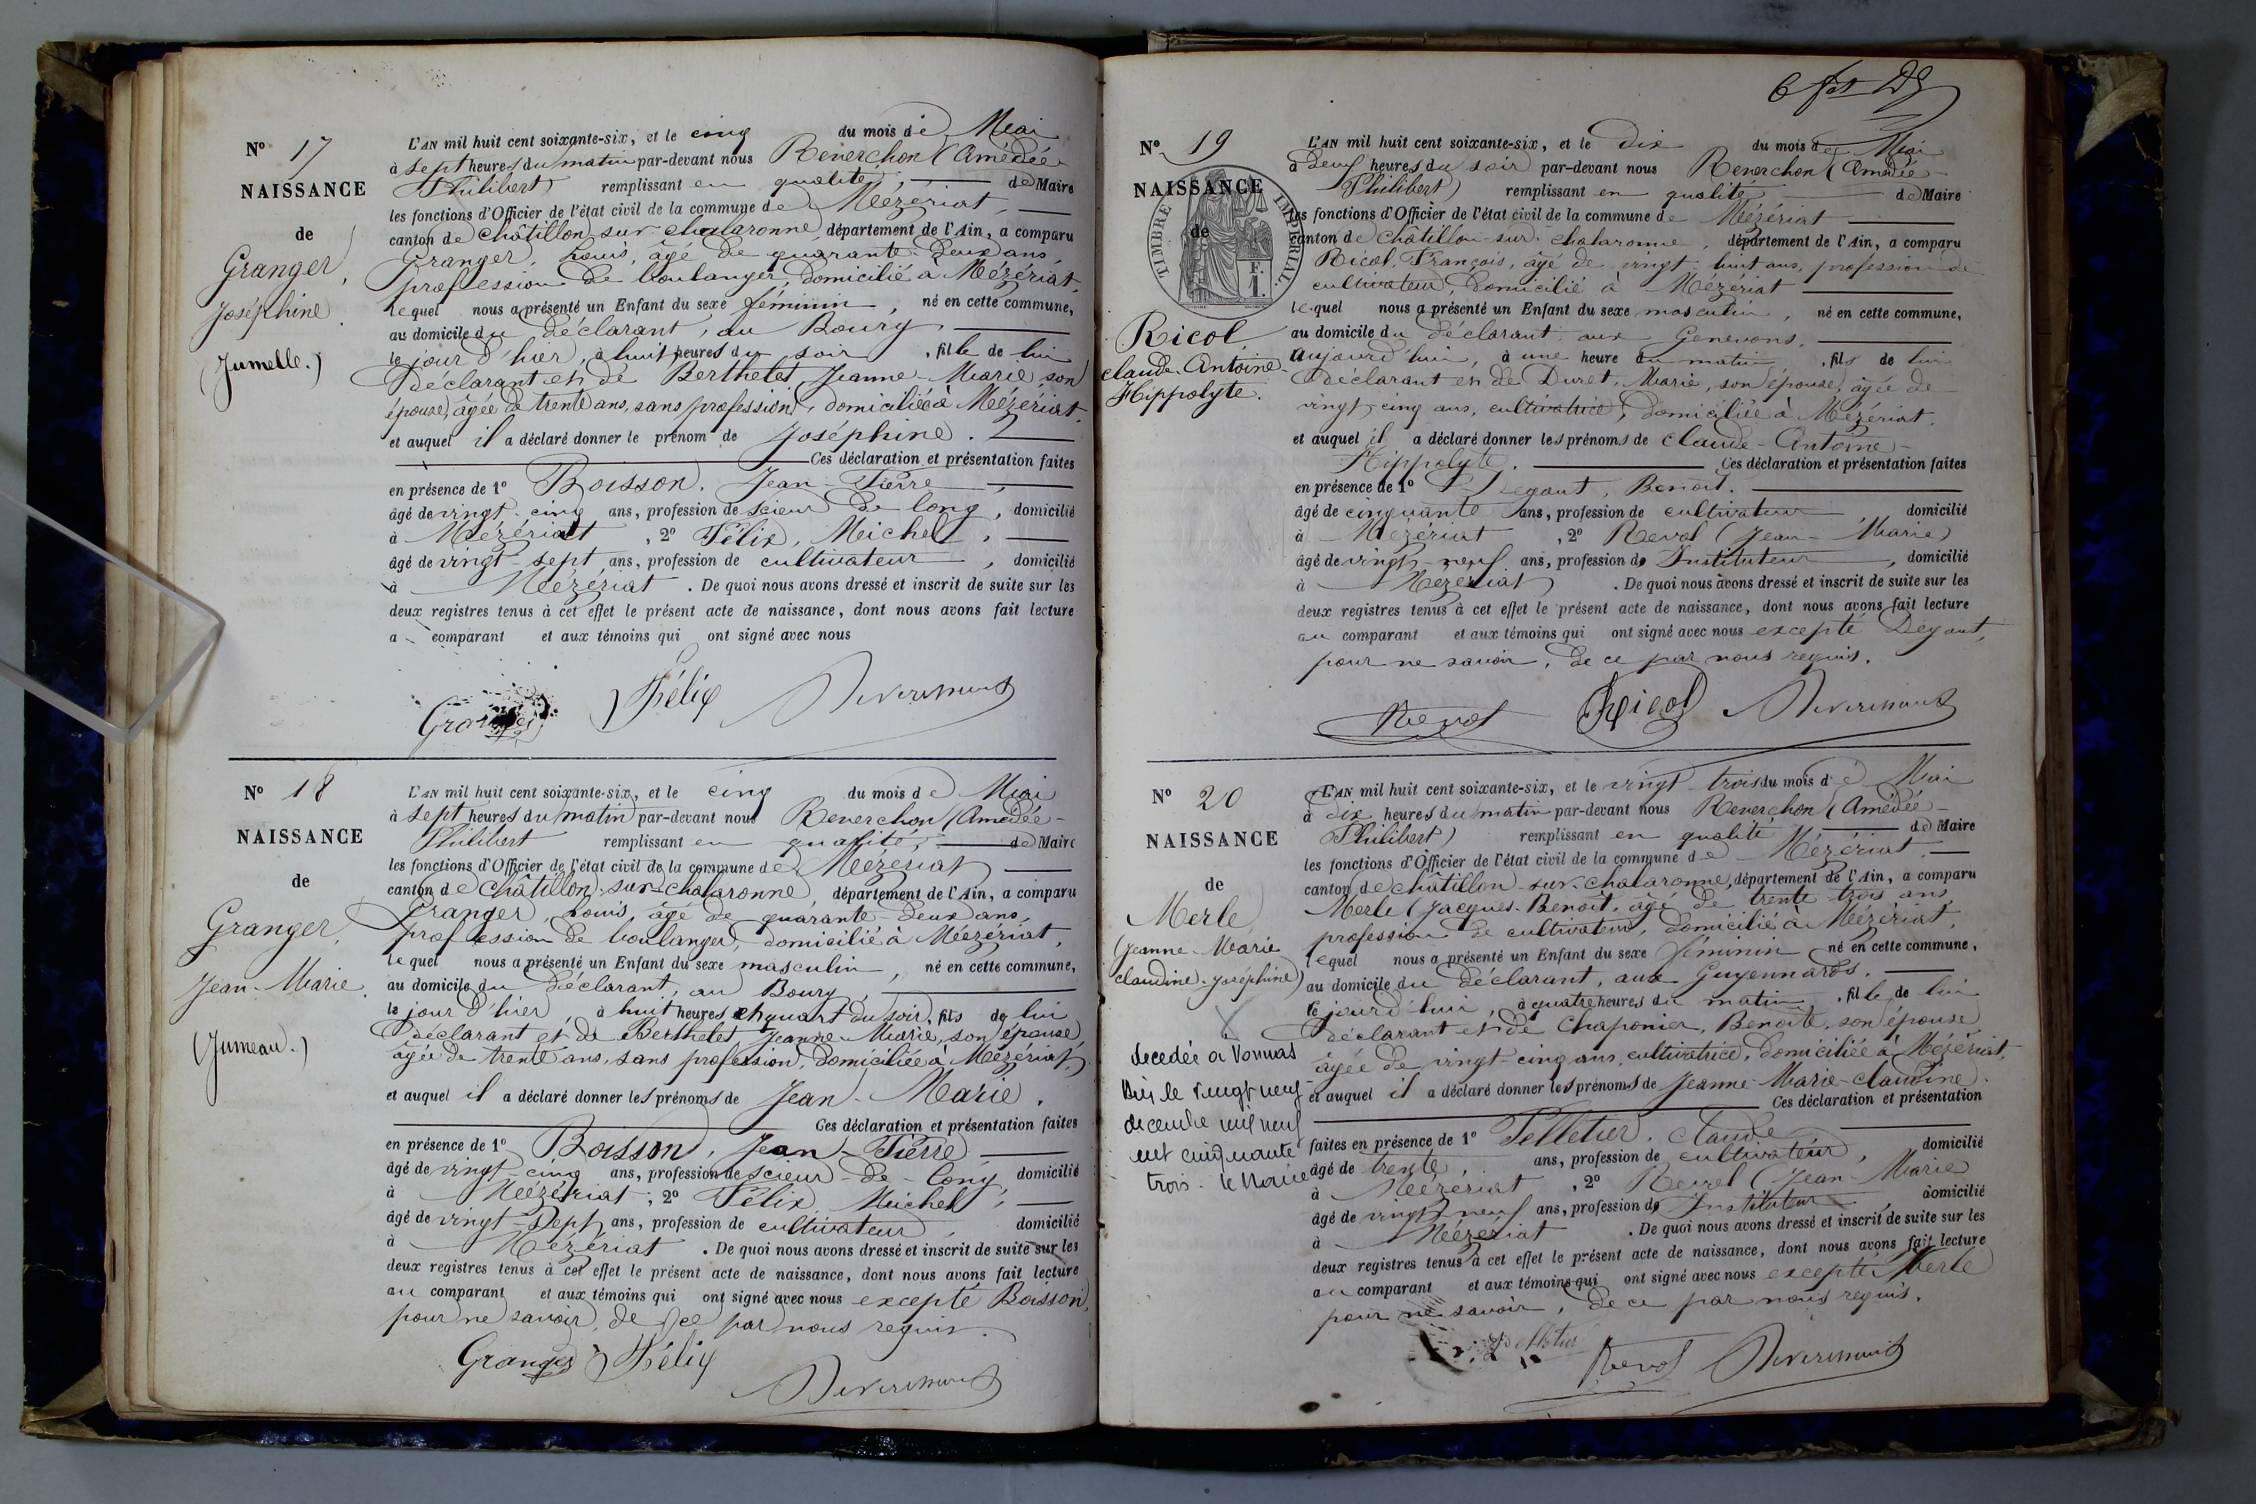 Nº 17
NAISSANCE
de
Granger,
Joséphine.
(Jumelle.)
L'AN mil huit cent soixante-six, et le cinq du mois de Mai
à sept heures du matin par-devant nous Reverchon (Amédée
Philibert) remplissant en qualité, de Maire
les fonctions d'Officier de l'état civil de la commune de Mézériat,
canton de Châtillon-sur-chalaronne, département de l'Ain, a comparu
Granger, Louis, âgé de quarante-deux ans,
profession de boulanger, domicilié à Mézériat,
lequel nous a présenté un Enfant du sexe féminin, né en cette commune,
au domicile du déclarant, au Bourg,
le jour d'hier, à huit heures du soir, fille de lui
déclarant et de Berthelet, Jeanne-Marie, son
épouse, âgée de trente ans, sans profession, domiciliée à Mézériat,
et auquel il a déclaré donner le prénom de Joséphine.
Ces déclaration et présentation faites
en présence de 1º Boisson, Jean-Pierre,
âgé de vingt-cinq ans, profession de scieur de long, domicilié
à Mézériat, 2º Félix, Michel,
âgé de vingt-sept ans, profession de cultivateur, domicilié
à Mézériat. De quoi nous avons dressé et inscrit de suite sur les
deux registres tenus à cet effet le présent acte de naissance, dont nous avons fait lecture
a comparant et aux témoins qui ont signé avec nous
Granger Félix Reverchon
Nº 18
NAISSANCE
de
Granger,
Jean-Marie.
(Jumeau.)
L'AN mil huit cent soixante-six, et le cinq du mois de Mai
à sept heures du matin par-devant nous Reverchon (Amédée-
Philibert remplissant en qualité, de Maire
les fonctions d'Officier de l'état civil de la commune de Mézériat
canton de Châtillon-sur-chalaronne, département de l'Ain, a comparu
Granger, Louis, âgé de quarante-deux ans,
profession de boulanger, domicilié à Mézériat,
lequel nous a présenté un Enfant du sexe masculin, né en cette commune,
au domicile du déclarant, au Bourg,
le jour d'hier, à huit heures et quart du soir, fils de lui
déclarant et de Berthelet Jeanne-Marie, son épouse,
âgée de trente ans, sans profession, domiciliée à Mézériat,
et auquel il a déclaré donner les prénoms de Jean-Marie.
Ces déclaration et présentation faites
en présence de 1º Boisson, Jean-Pierre,
âgé de vingt-cinq ans, profession de scieur-de-long, domicilié
à Mézériat, 2º Félix, Michel,
âgé de vingt-sept ans, profession de cultivateur, domicilié
à Mézériat. De quoi nous avons dressé et inscrit de suite sur les
deux registres tenus à cet effet le présent acte de naissance, dont nous avons fait lecture
au comparant et aux témoins qui ont signé avec nous excepté Boisson,
pour ne savoir, de ce par nous requis.
Granger Félix
Reverchon
Nº 19
NAISSANCE
de
TIMBRE IMPÉRIAL.
F.
1.
Ricol,
Claude-Antoine-
Hippolyte.
L'AN mil huit cent soixante-six, et le dix du mois de Mai
à deux heures du soir par-devant nous Reverchon (Amédée-
Philibert) remplissant en qualité de Maire
les fonctions d'Officier de l'état civil de la commune de Mézériat
canton de Châtillon-sur-chalaronne, département de l'Ain, a comparu
Ricol, François, âgé de vingt-huit ans, profession de
cultivateur, domicilié à Mézériat
lequel nous a présenté un Enfant du sexe masculin, né en cette commune,
au domicile du déclarant aux Genevons,
aujourd'hui, à une heure du matin, fils de lui
déclarant et de Duret, Marie, son épouse, âgée de
vingt-cinq ans, cultivatrice, domiciliée à Mézériat,
et auquel il a déclaré donner les prénoms de Claude-Antoine-
Hippolyte. Ces déclaration et présentation faites
en présence de 1º Degout, Benoit.
âgé de cinquante ans, profession de cultivateur, domicilié
à Mézériat, 2º Revol (Jean-Marie)
âgé de vingt-neuf ans, profession de Instituteur, domicilié
à Mézériat. De quoi nous avons dressé et inscrit de suite sur les
deux registres tenus à cet effet le présent acte de naissance, dont nous avons fait lecture
au comparant et aux témoins qui ont signé avec nous excepté Degout,
pour ne savoir, de ce par nous requis.
Revol Ricol Reverchon
Nº 20
NAISSANCE
de
Merle,
(Jeanne-Marie
claudine-Joséphine)
décédée à Vonnas
le vingt neuf
décembre mil neuf
cent cinquante
trois. le Maire
L'AN mil huit cent soixante-six, et le vingt-trois du mois de Mai
à dix heures du matin par-devant nous Reverchon (Amédée-
Philibert) remplissant en qualité de Maire
les fonctions d'Officier de l'état civil de la commune de Mézériat,
canton de châtillon-sur-chalaronne, département de l'Ain, a comparu
Merle (Jacques-Benoit, âgé de trente trois ans,
profession de cultivateur, domicilié à Mézériat,
lequel nous a présenté un Enfant du sexe féminin né en cette commune,
au domicile du déclarant, aux Guyennards,
ce jourd'hui, à quatre heures du matin, fille de lui
déclarant et de Chaponier, Benoite, son épouse
âgée de vingt-cinq ans, cultivatrice, domiciliée à Mézériat,
et auquel il a déclaré donner les prénoms de Jeanne-Marie-claudine.
Ces déclaration et présentation
faites en présence de 1º Pelletier, Claude
âgé de trente, ans, profession de cultivateur, domicilié
à Mézériat, 2º Revol (Jean-Marie
âgé de vingt-neuf ans, profession de Instituteur, domicilié
à Mézériat. De quoi nous avons dressé et inscrit de suite sur les
deux registres tenus à cet effet le présent acte de naissance, dont nous avons fait lecture
au comparant et aux témoins qui ont signé avec nous excepté Merle
pour ne savoir, de ce par nous requis.
Pelletier Revol Reverchon